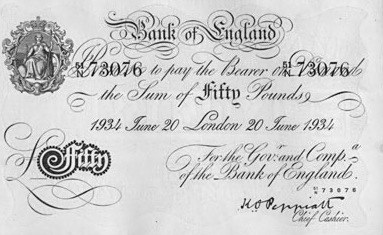 Bank of England
51/N 73076 Promise to pay the Bearer on Demand 51/N 73076
the Sum of Fifty Pounds
1934 June 20 London 20 June 1934
For the Govr. and Compa.
£ Fifty
of the Bank of England.
51/N 73076
K O Peppiatt
Chief Cashier.